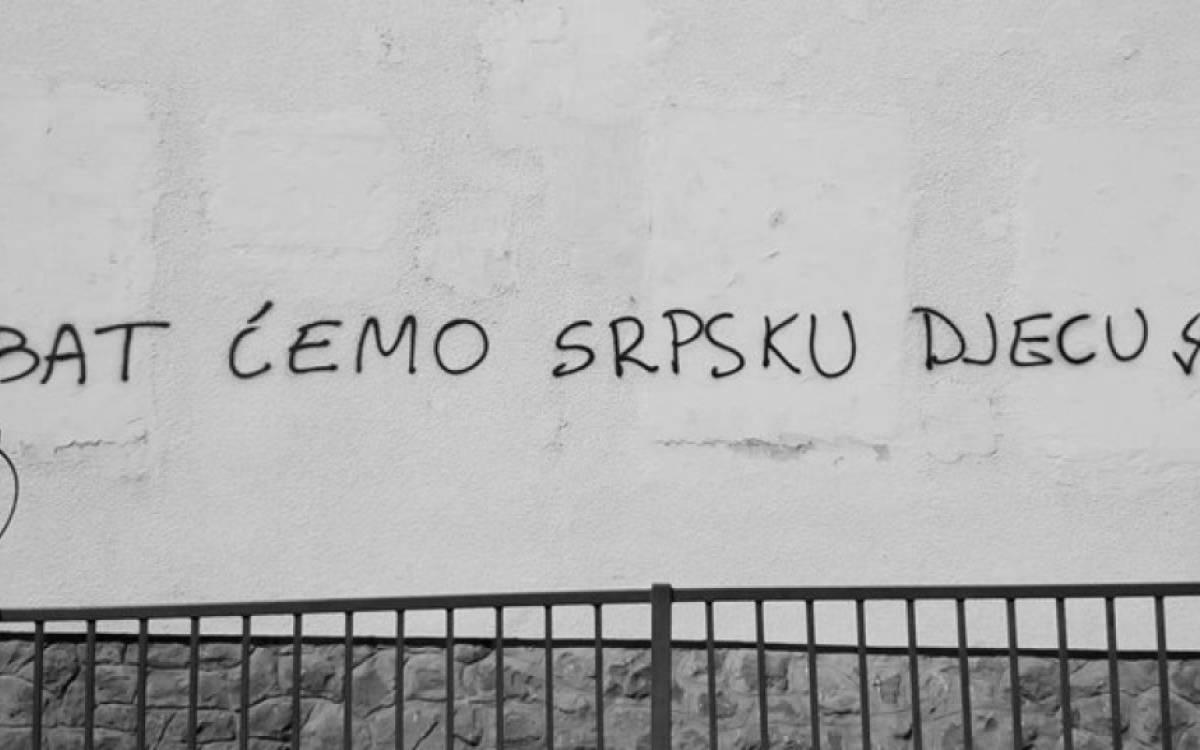 BAT ĆEMO SRPSKU DJECU